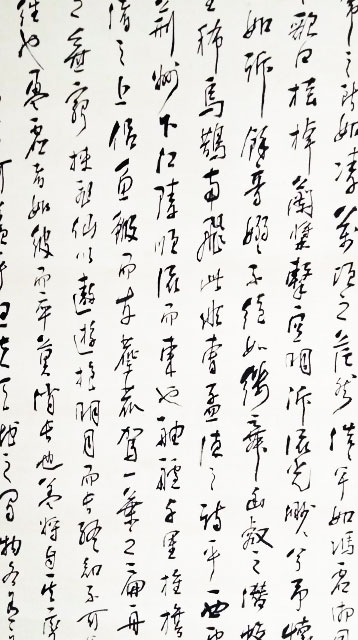 之所如凌萬頃之茫然浩乎如馮虛
歌曰桂棹蘭槳擊空明泝流光渺渺兮予懷
如訴餘音嫋嫋不絕如縷舞幽壑之潛
稀烏鵲南飛此非曹孟德之詩乎西
荊州下江陵順流而東也舳艫千里旌旗
渚之上侶魚蝦而友麋鹿駕一葉之扁舟
之無窮挾飛仙以遨遊抱明月而長終知不可
往也盈虛者如彼而卒莫消長也蓋將自其變
乎且夫天地之間物各有